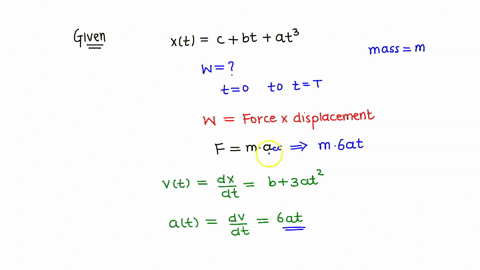 Given
x(t) = c + bt + at³
mass = m
W = ?
t = 0 to t = T
W = Force x displacement
F = m·acc ⟹ m·6at
v(t) = dx/dt = b + 3at²
a(t) = dv/dt = 6at